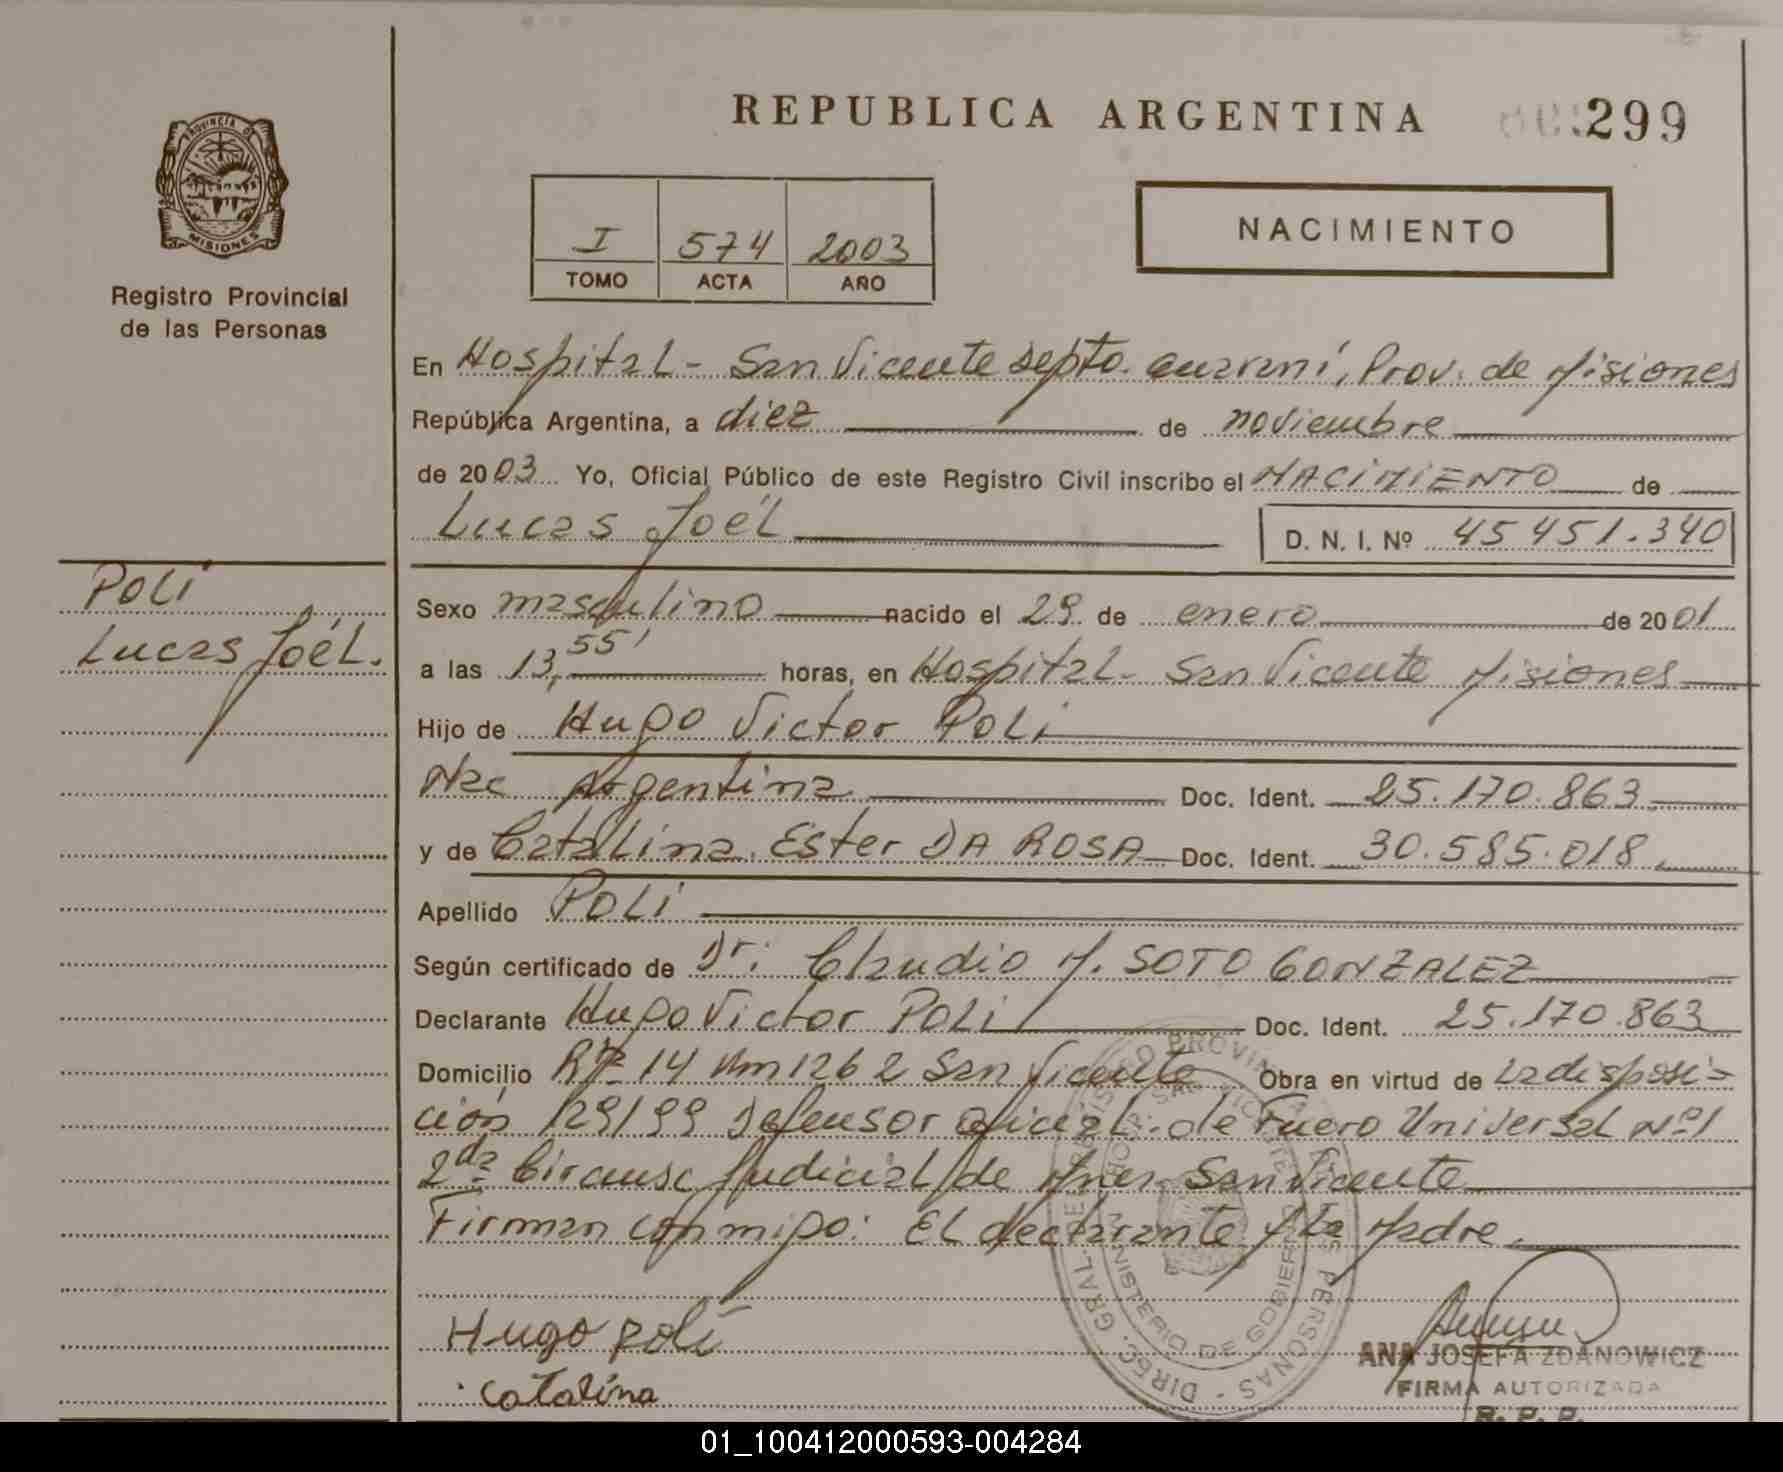 REPUBLICA ARGENTINA
299
PROVINCIA DE
MISIONES
Registro Provincial
de las Personas
I 574 2003
TOMO ACTA AÑO
NACIMIENTO
En Hospital - San Vicente Depto. Guaraní, Prov. de Misiones
República Argentina, a diez de noviembre
de 2003 Yo, Oficial Público de este Registro Civil inscribo el NACIMIENTO de
Lucas Joél D. N. I. Nº 45 451.340
POLI
Lucas Joél.
Sexo masculino nacido el 29 de enero de 2001
a las 13,55' horas, en Hospital - San Vicente Misiones
Hijo de Hugo Victor POLI
Nac Argentina Doc. Ident. 25.170.863
y de Catalina Ester DA ROSA Doc. Ident. 30.585.018
Apellido POLI
Según certificado de Dr: Claudio M. SOTO GONZALEZ
Declarante Hugo Victor POLI Doc. Ident. 25.170.863
Domicilio 14 Km 1262 San Vicente Obra en virtud de La disposi-
ción 129/99 Defensor oficial de Fuero Universal Nº1
2da Circunsc Judicial de San Vicente
Firman conmigo: El declarante y La Madre.
Hugo poli
Catalina
DIREC. GRAL. REGISTRO PROVINCIAL DE LAS PERSONAS
MINISTERIO DE GOBIERNO
ANA JOSEFA ZDANOWICZ
FIRMA AUTORIZADA
R. P. P.
01_100412000593-004284